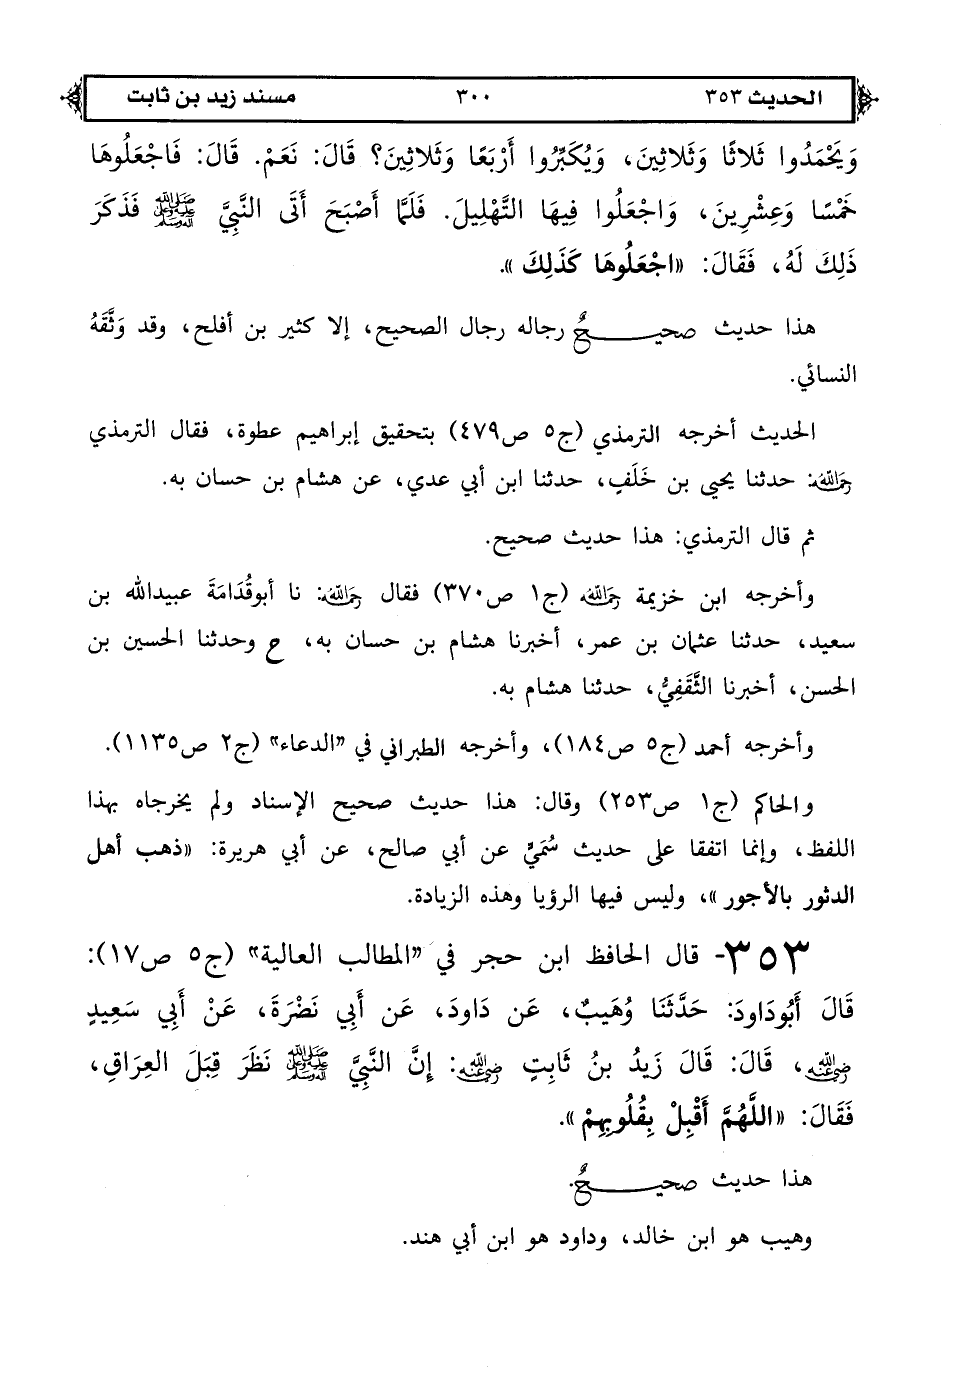 الحديث ٣٥٣ ٣٠٠ مسند زيد بن ثابت
وَيَحْمَدُوا ثَلَاثًا وَثَلَاثِينَ، وَيُكَبِّرُوا أَرْبَعًا وَثَلَاثِينَ؟ قَالَ: نَعَمْ. قَالَ: فَاجْعَلُوهَا
خَمْسًا وَعِشْرِينَ، وَاجْعَلُوا فِيهَا التَّهْلِيلَ. فَلَمَّا أَصْبَحَ أَتَى النَّبِيَّ ﷺ فَذَكَرَ
ذَلِكَ لَهُ، فَقَالَ: «اجْعَلُوهَا كَذَلِكَ».
هذا حديث صحيحٌ رجاله رجال الصحيح، إلا كثير بن أفلح، وقد وَثَّقَهُ
النسائي.
الحديث أخرجه الترمذي (ج٥ ص٤٧٩) بتحقيق إبراهيم عطوة، فقال الترمذي
رحمه الله: حدثنا يحيى بن خَلَفٍ، حدثنا ابن أبي عدي، عن هشام بن حسان به.
ثم قال الترمذي: هذا حديث صحيح.
وأخرجه ابن خزيمة رحمه الله (ج١ ص٣٧٠) فقال رحمه الله: نا أبوقُدَامَةَ عبيدالله بن
سعيد، حدثنا عثمان بن عمر، أخبرنا هشام بن حسان به، ح وحدثنا الحسين بن
الحسن، أخبرنا الثَّقَفِيُّ، حدثنا هشام به.
وأخرجه أحمد (ج٥ ص١٨٤)، وأخرجه الطبراني في "الدعاء" (ج٢ ص١١٣٥).
والحاكم (ج١ ص٢٥٣) وقال: هذا حديث صحيح الإسناد ولم يخرجاه بهذا
اللفظ، وإنما اتفقا على حديث سُمَيٍّ عن أبي صالح، عن أبي هريرة: «ذهب أهل
الدثور بالأجور»، وليس فيها الرؤيا وهذه الزيادة.
٣٥٣- قال الحافظ ابن حجر في "المطالب العالية" (ج٥ ص١٧):
قَالَ أَبُودَاودَ: حَدَّثَنَا وُهَيبٌ، عَن دَاودَ، عَن أَبِي نَضْرَةَ، عَنْ أَبِي سَعِيدٍ
رضي الله عنه، قَالَ: قَالَ زَيدُ بنُ ثَابِتٍ رضي الله عنه: إِنَّ النَّبِيَّ ﷺ نَظَرَ قِبَلَ العِرَاقِ،
فَقَالَ: «اللَّهُمَّ أَقْبِلْ بِقُلُوبِهِمْ».
هذا حديث صحيحٌ.
وهيب هو ابن خالد، وداود هو ابن أبي هند.